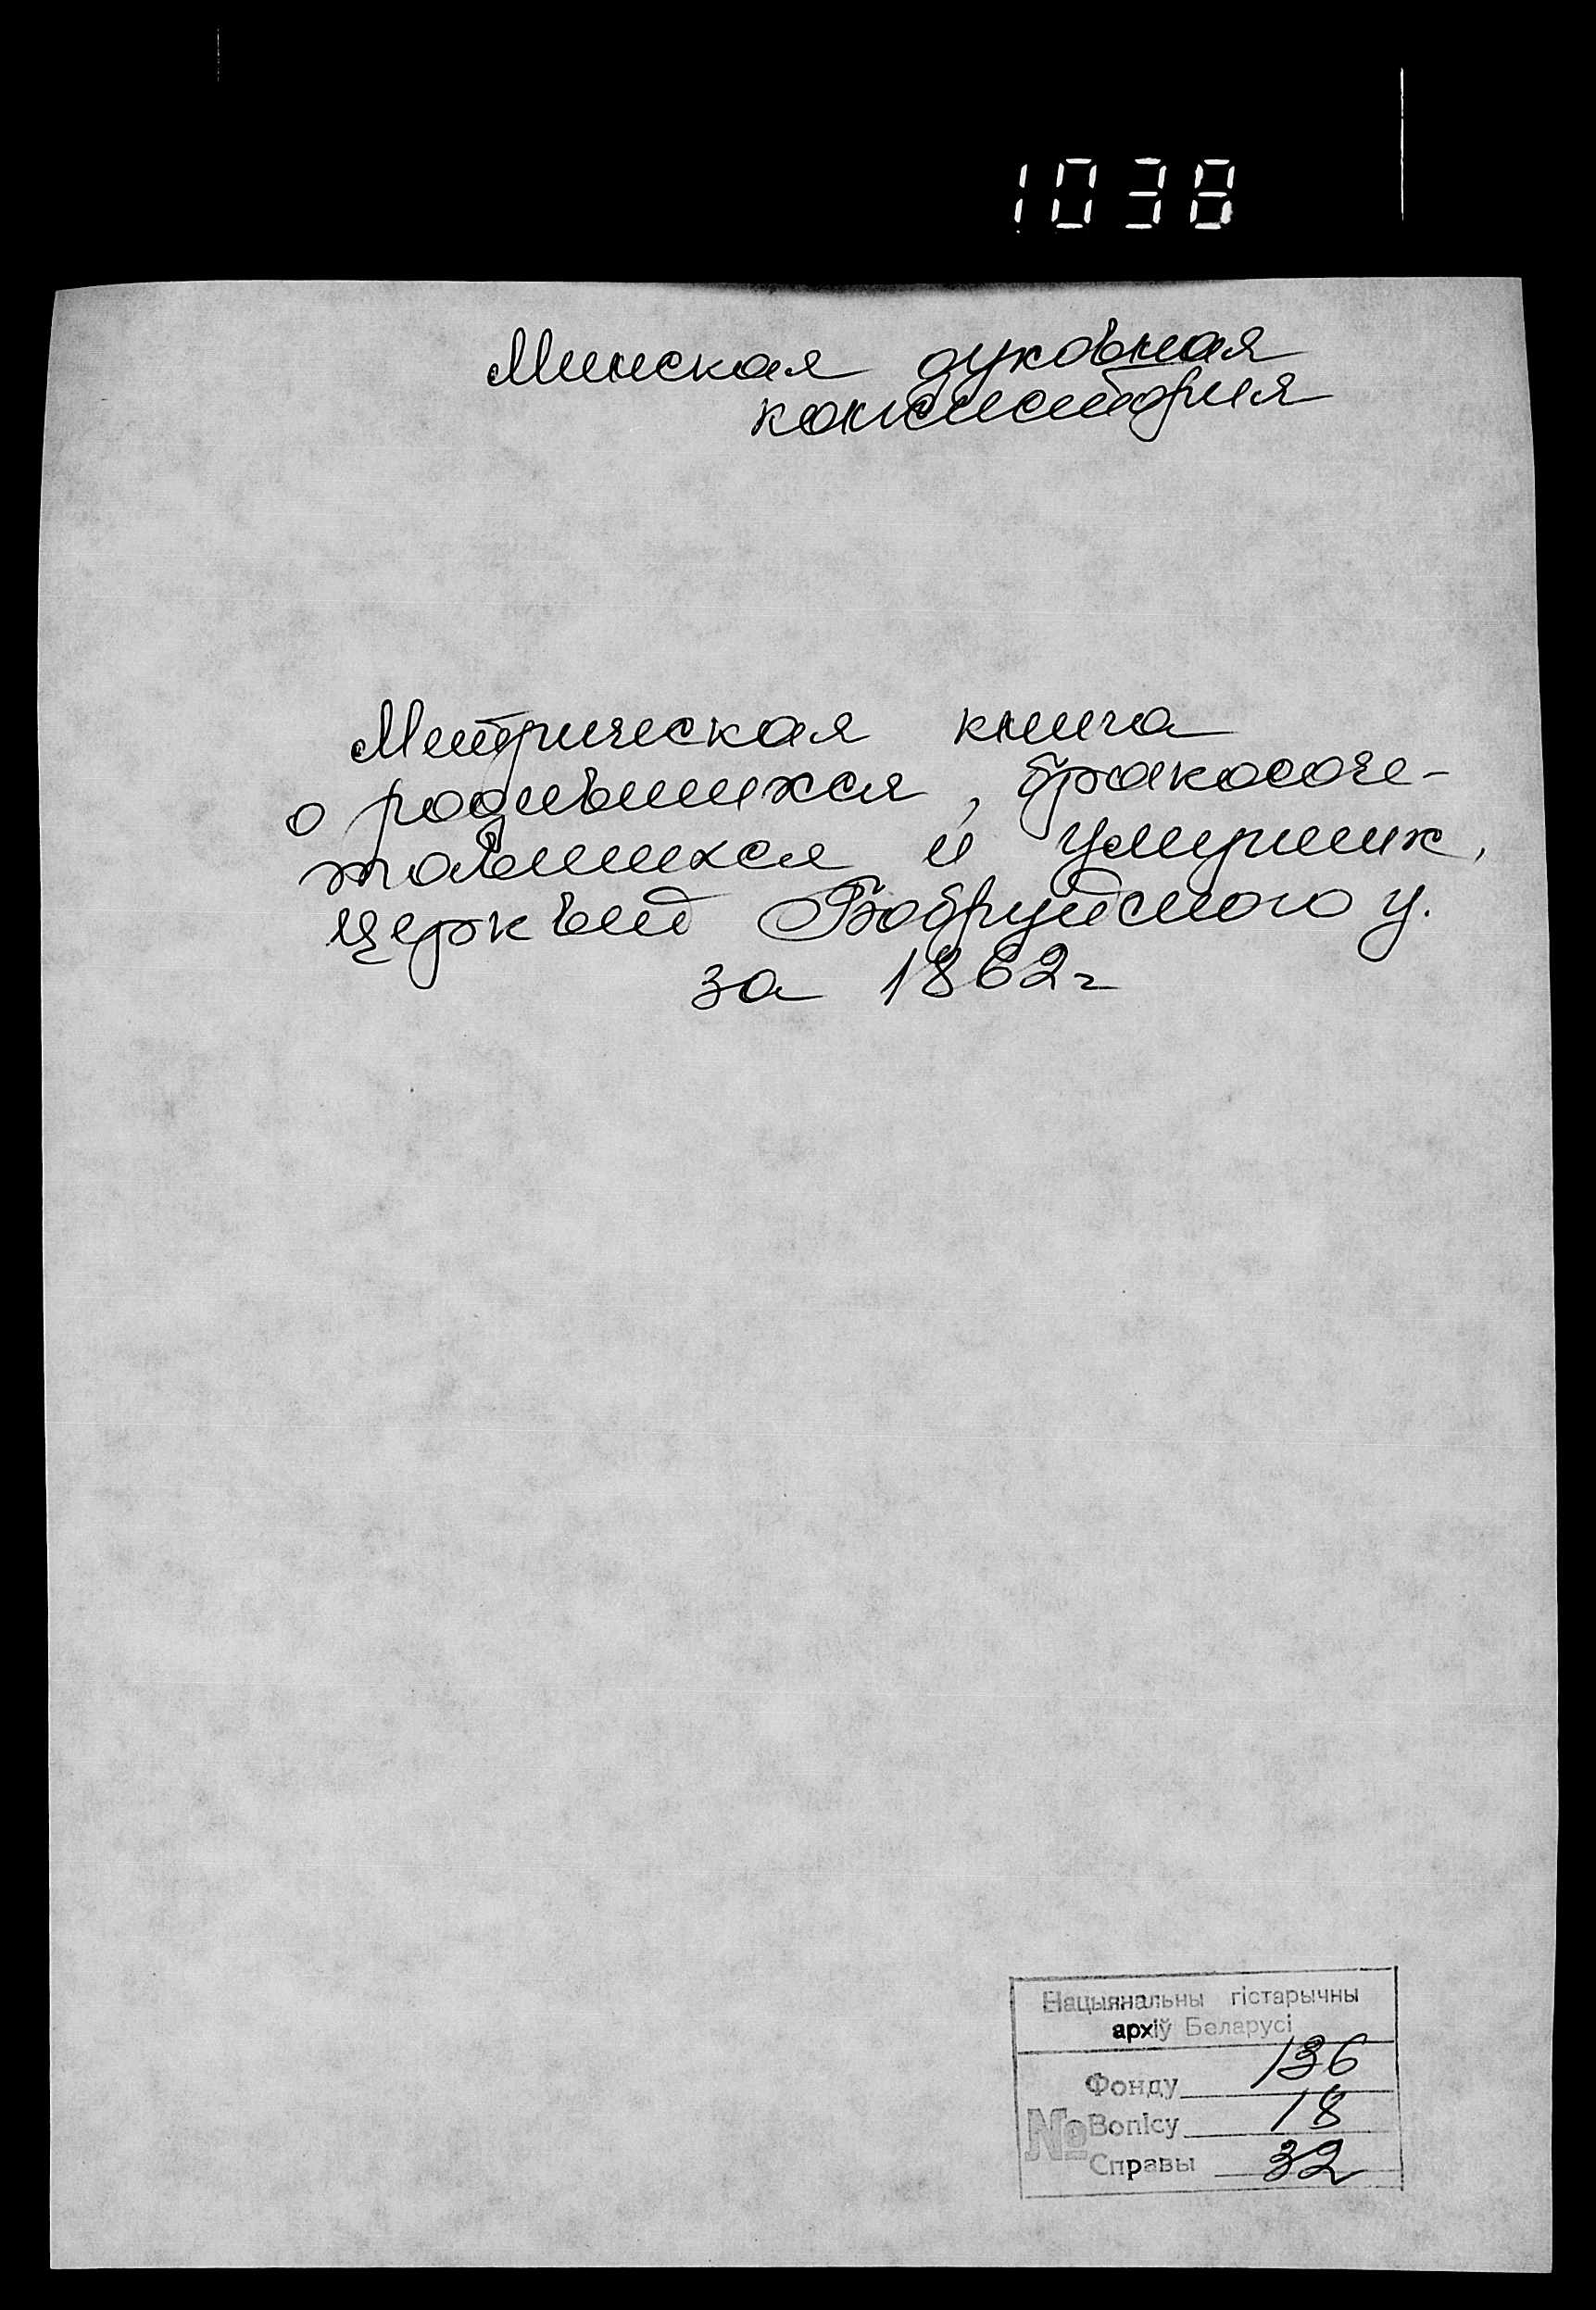 1038
Минская духовная
консистория
Метрическая книга
о родившихся, бракосоче-
тавшихся и умерших,
церквей Бобруйского у.
за 1862 г
Нацыянальны гістарычны
архіў Беларусі
Фонду 136
№ Вопісу 18
Справы 32